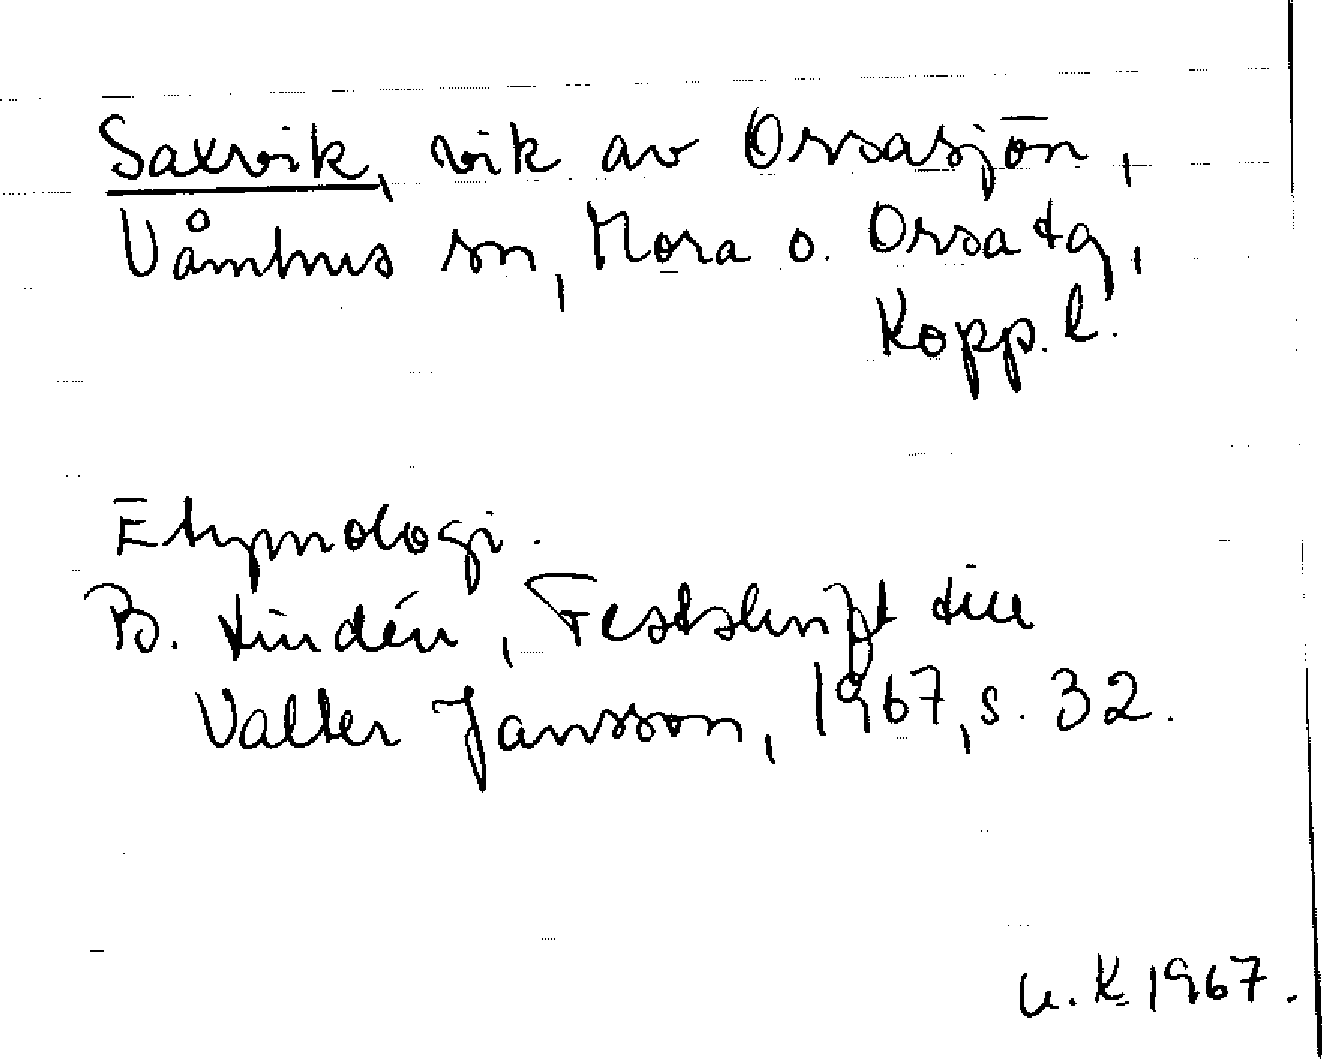 Saxvik, vik av Orsasjön,
Våmhus sn, Mora o. Orsa tg,
Kopp. l.
Etymologi.
B. Lindén, Festskrift till
Valter Jansson, 1967, s. 32.
u. K 1967.